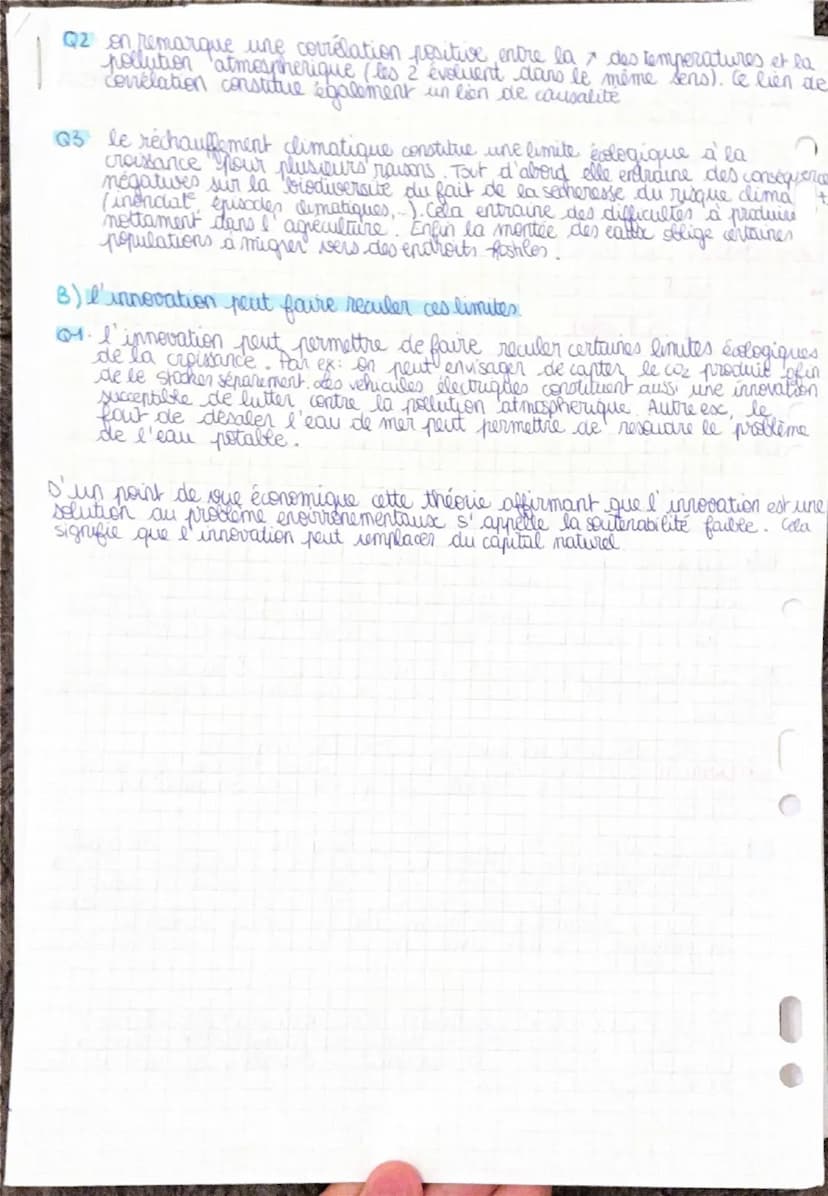 Q2 on remarque une corrélation positive entre la ↗ des températures et la
pollution atmospherique (les 2 évoluent dans le même sens). Ce lien de
corrélation constitue également un lien de causalité
Q3 le réchauffement climatique constitue une limite écologique à la
croissance pour plusieurs raisons. Tout d'abord elle entraine des conséquence
négatives sur la biodiversité du fait de la sécheresse du risque clima
(inondat° épisodes climatiques, ..). Cela entraine des difficultés à produire
nottament dans l'agriculture. Enfin la montée des eaux oblige certaines
populations à migrer vers des endroits
B) l'innovation peut faire reculer ces limites
Q1. l'innovation peut permettre de faire reculer certaines limites écologiques
de la croissance. Par ex: on peut envisager de capter le co2 produit afin
de le stocker séparement. des vehicules électriques constituent aussi une innovation
susceptible de lutter contre la pollution atmospherique. Autre ex, le
fait de désaler l'eau de mer peut permettre de resoudre le problème
de l'eau potable.
D'un point de vue économique cette théorie affirmant que l'innovation est une
solution au problème environementaux s'appelle la soutenabilité faible. Cela
signifie que l'innovation peut remplacer du capital naturel